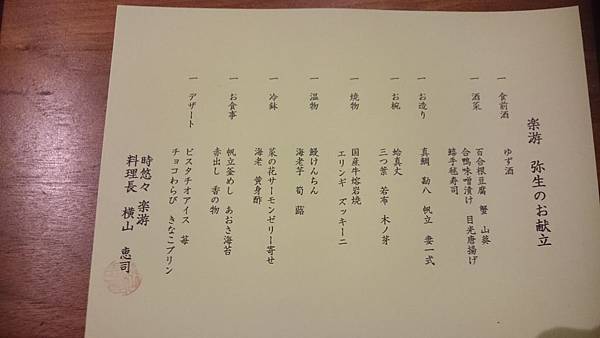 楽游 弥生のお献立
一 食前酒 ゆず酒
一 酒菜 百合根豆腐 蟹 山葵
合鴨味噌漬け 目光唐揚げ
鱚手毬寿司
一 お造り 真鯛 勘八 帆立 妻一式
一 お椀 蛤真丈
三つ葉 若布 木ノ芽
一 焼物 国産牛熔岩焼
エリンギ ズッキーニ
一 温物 鰻けんちん
海老芋 筍 蕗
一 冷鉢 菜の花サーモンゼリー寄せ
海老 黄身酢
一 お食事 帆立釜めし あおさ海苔
赤出し 香の物
一 デザート ピスタチオアイス 苺
チョコわらび きなこプリン
時悠々 楽游
料理長 横山 恵司